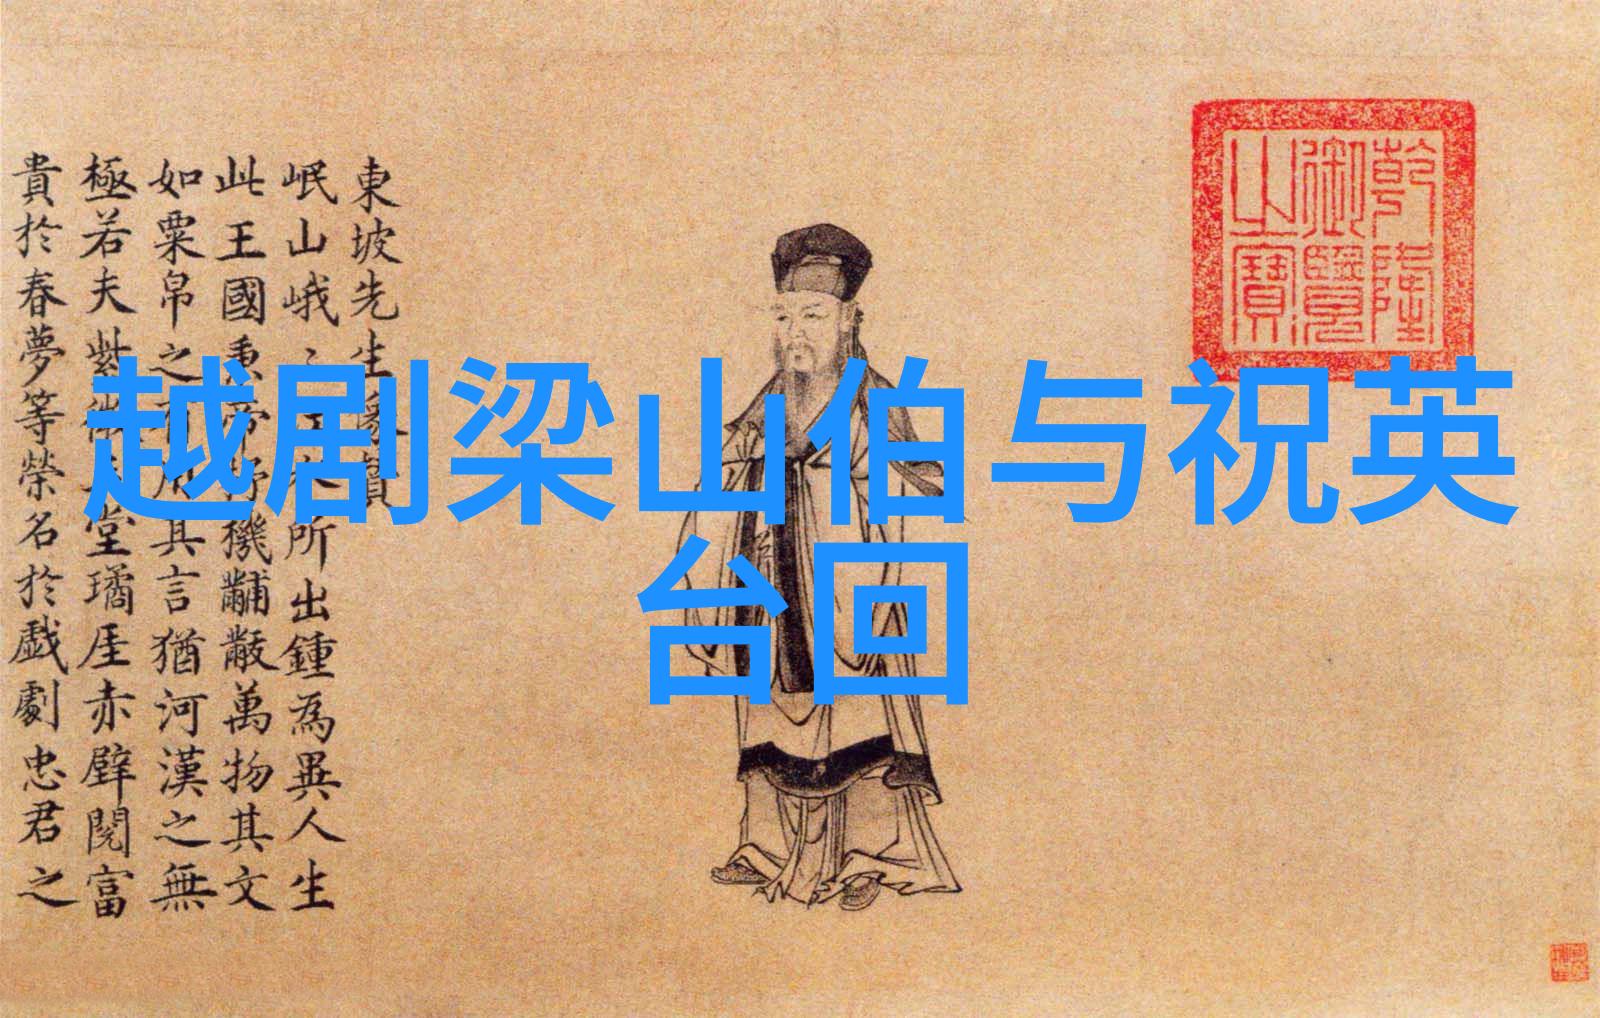 越剧梁山伯与祝英
台回
東坡先生像贊
岷山峨々江水所出鍾為異人生
此王國秉帝杼機黼黻萬物其文
如粟帛之有用其言猶河漢之無
極若夫紫微堂璚厓赤壁閱富
貴於春夢等榮名於戯劇忠君之
乾隆
御覽
之寶